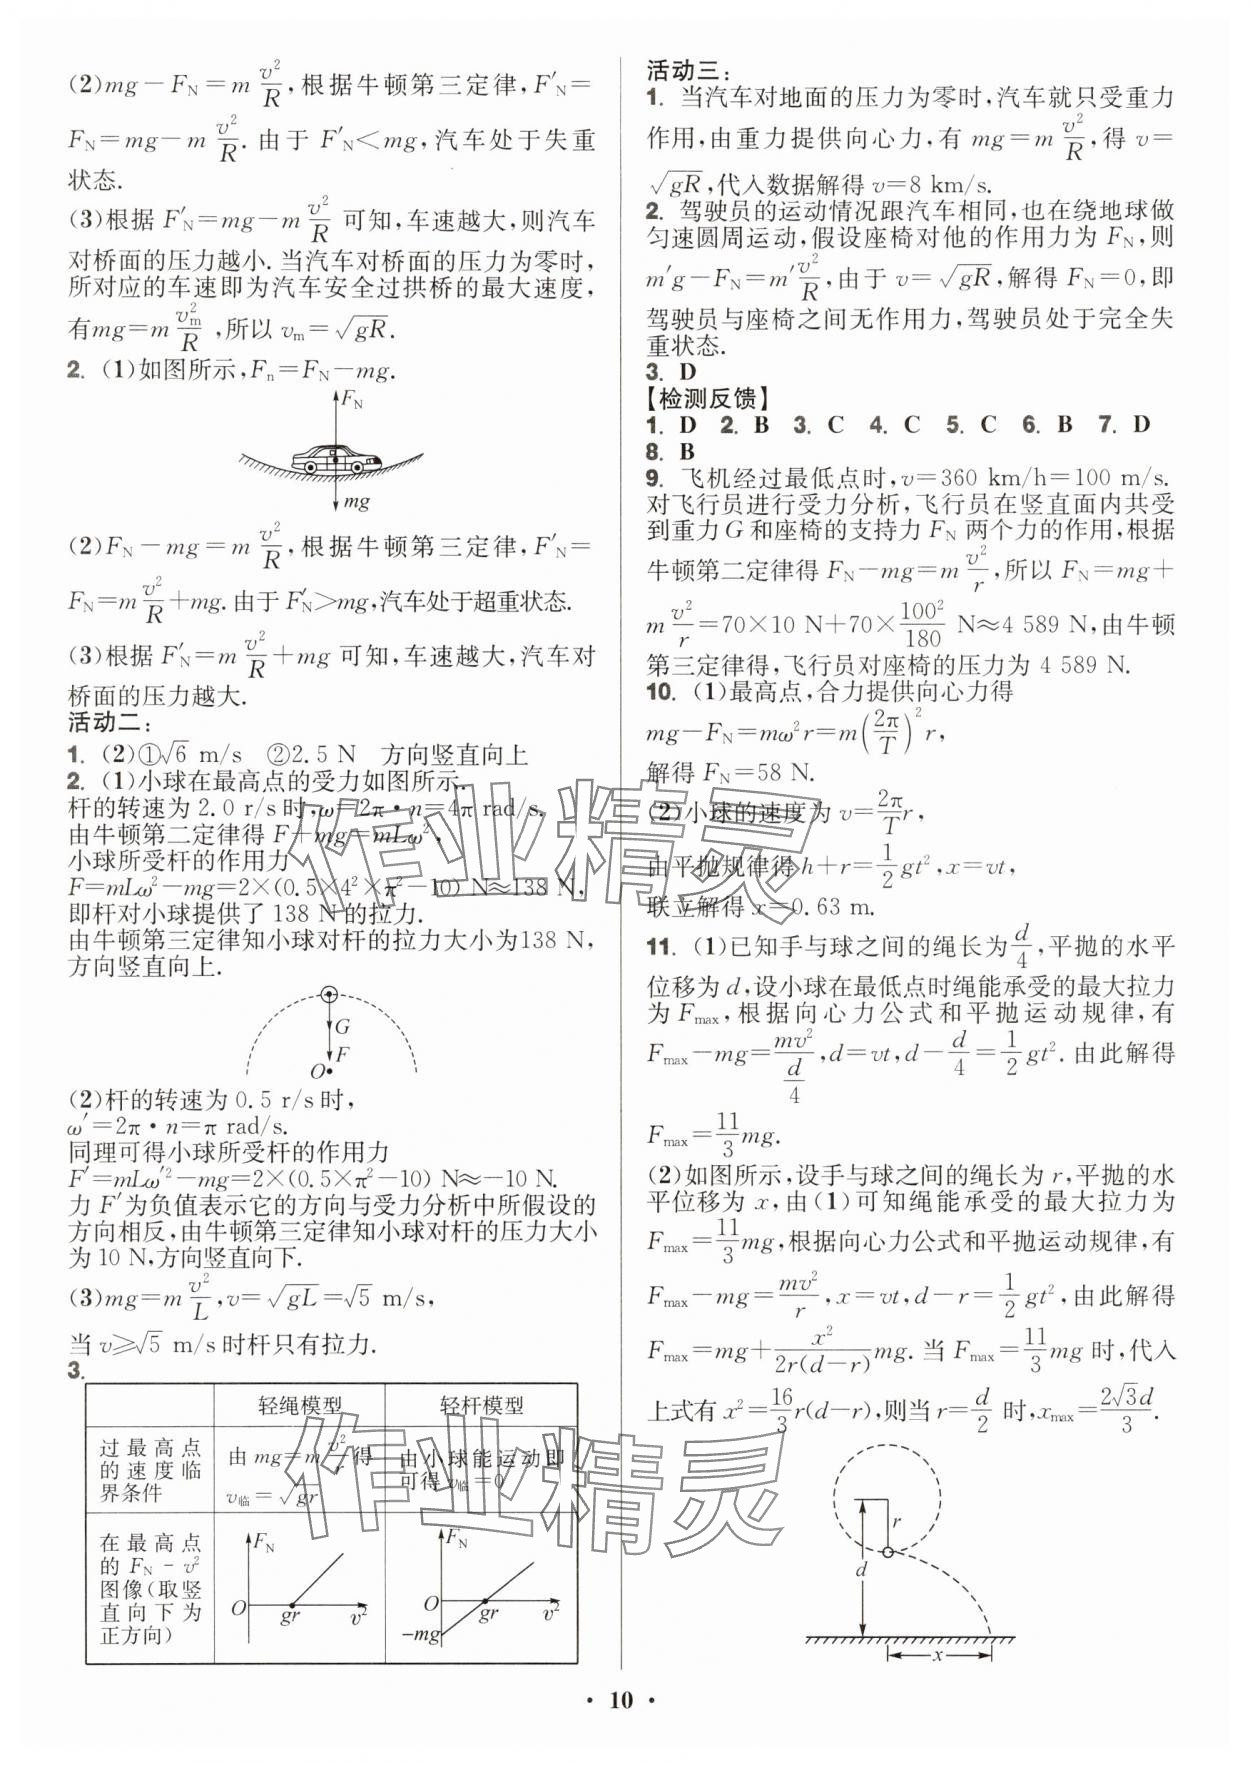 (2)mg－F_N＝m v²/R,根据牛顿第三定律,F′_N＝
F_N＝mg－m v²/R.由于 F′_N＜mg,汽车处于失重
状态.
(3)根据 F′_N＝mg－m v²/R 可知,车速越大,则汽车
对桥面的压力越小.当汽车对桥面的压力为零时,
所对应的车速即为汽车安全过拱桥的最大速度,
有mg＝m v_m²/R,所以 v_m＝√gR.
2. (1)如图所示,F_n＝F_N－mg.
F_N
mg
(2)F_N－mg＝m v²/R,根据牛顿第三定律,F′_N＝
F_N＝m v²/R＋mg.由于 F′_N＞mg,汽车处于超重状态.
(3)根据 F′_N＝m v²/R＋mg 可知,车速越大,汽车对
桥面的压力越大.
活动二：
1. (2)①√6 m/s ②2.5 N 方向竖直向上
2. (1)小球在最高点的受力如图所示.
杆的转速为 2.0 r/s时,ω＝2π·n＝4π rad/s.
由牛顿第二定律得 F＋mg＝mLω²,
小球所受杆的作用力
F＝mLω²－mg＝2×(0.5×4²×π²－10) N≈138 N,
即杆对小球提供了 138 N的拉力.
由牛顿第三定律知小球对杆的拉力大小为138 N,
方向竖直向上.
G
F
O
(2)杆的转速为 0.5 r/s时,
ω′＝2π·n＝π rad/s.
同理可得小球所受杆的作用力
F′＝mLω′²－mg＝2×(0.5×π²－10) N≈－10 N.
力 F′为负值表示它的方向与受力分析中所假设的
方向相反,由牛顿第三定律知小球对杆的压力大小
为 10 N,方向竖直向下.
(3)mg＝m v²/L,v＝√gL＝√5 m/s,
当 v≥√5 m/s时杆只有拉力.
3.
轻绳模型 轻杆模型
过最高点的速度临界条件 由 mg＝m v²/r 得 v临＝√gr 由小球能运动即可得 v临＝0
在最高点的 F_N－v²图像(取竖直向下为正方向)
F_N O gr v²
F_N O gr v² －mg
活动三：
1. 当汽车对地面的压力为零时,汽车就只受重力
作用,由重力提供向心力,有 mg＝m v²/R,得 v＝
√gR,代入数据解得 v＝8 km/s.
2. 驾驶员的运动情况跟汽车相同,也在绕地球做
匀速圆周运动,假设座椅对他的作用力为 F_N,则
m′g－F_N＝m′v²/R,由于 v＝√gR,解得 F_N＝0,即
驾驶员与座椅之间无作用力,驾驶员处于完全失
重状态.
3. D
【检测反馈】
1. D 2. B 3. C 4. C 5. C 6. B 7. D
8. B
9. 飞机经过最低点时,v＝360 km/h＝100 m/s.
对飞行员进行受力分析,飞行员在竖直面内共受
到重力 G 和座椅的支持力 F_N 两个力的作用,根据
牛顿第二定律得 F_N－mg＝m v²/r,所以 F_N＝mg＋
m v²/r＝70×10 N＋70×100²/180 N≈4 589 N,由牛顿
第三定律得,飞行员对座椅的压力为 4 589 N.
10. (1)最高点,合力提供向心力得
mg－F_N＝mω²r＝m(2π/T)²r,
解得 F_N＝58 N.
(2)小球的速度为 v＝2π/T r,
由平抛规律得h＋r＝1/2 gt²,x＝vt,
联立解得 x＝0.63 m.
11. (1)已知手与球之间的绳长为 d/4,平抛的水平
位移为 d,设小球在最低点时绳能承受的最大拉力
为 F_max,根据向心力公式和平抛运动规律,有
F_max－mg＝mv²/(d/4),d＝vt,d－d/4＝1/2 gt².由此解得
F_max＝11/3 mg.
(2)如图所示,设手与球之间的绳长为 r,平抛的水
平位移为 x,由(1)可知绳能承受的最大拉力为
F_max＝11/3 mg,根据向心力公式和平抛运动规律,有
F_max－mg＝mv²/r,x＝vt,d－r＝1/2 gt²,由此解得
F_max＝mg＋x²/2r(d－r) mg.当 F_max＝11/3 mg 时,代入
上式有 x²＝16/3 r(d－r),则当 r＝d/2 时,x_max＝2√3d/3.
r
d
x
作业精灵
作业精灵
· 10 ·